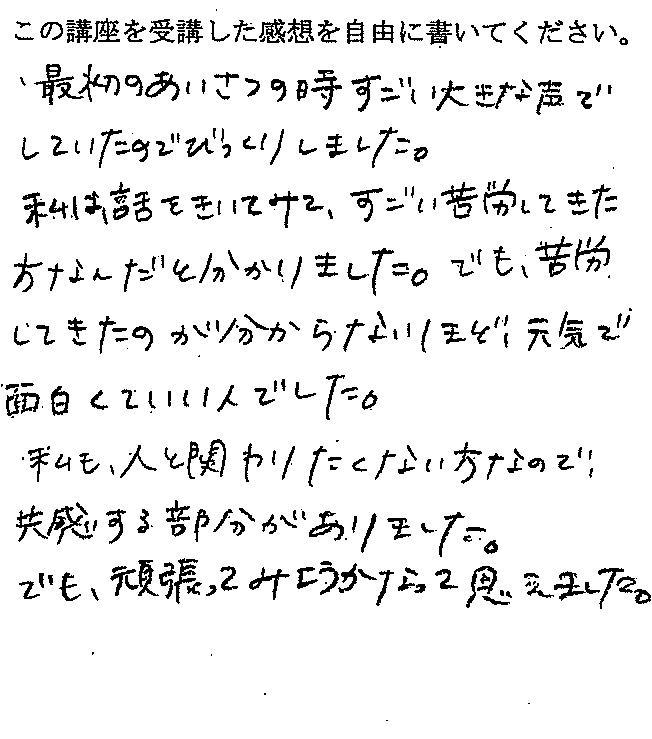 この講座を受講した感想を自由に書いてください。
最初のあいさつの時すごい大きな声で
していたのでびっくりしました。
私は話をきいてみて、すごい苦労してきた
方なんだと分かりました。でも、苦労
してきたのが分からないほど、元気で
面白くていい人でした。
私も、人と関わりたくない方なので、
共感する部分がありました。
でも、頑張ってみようかなって思えました。